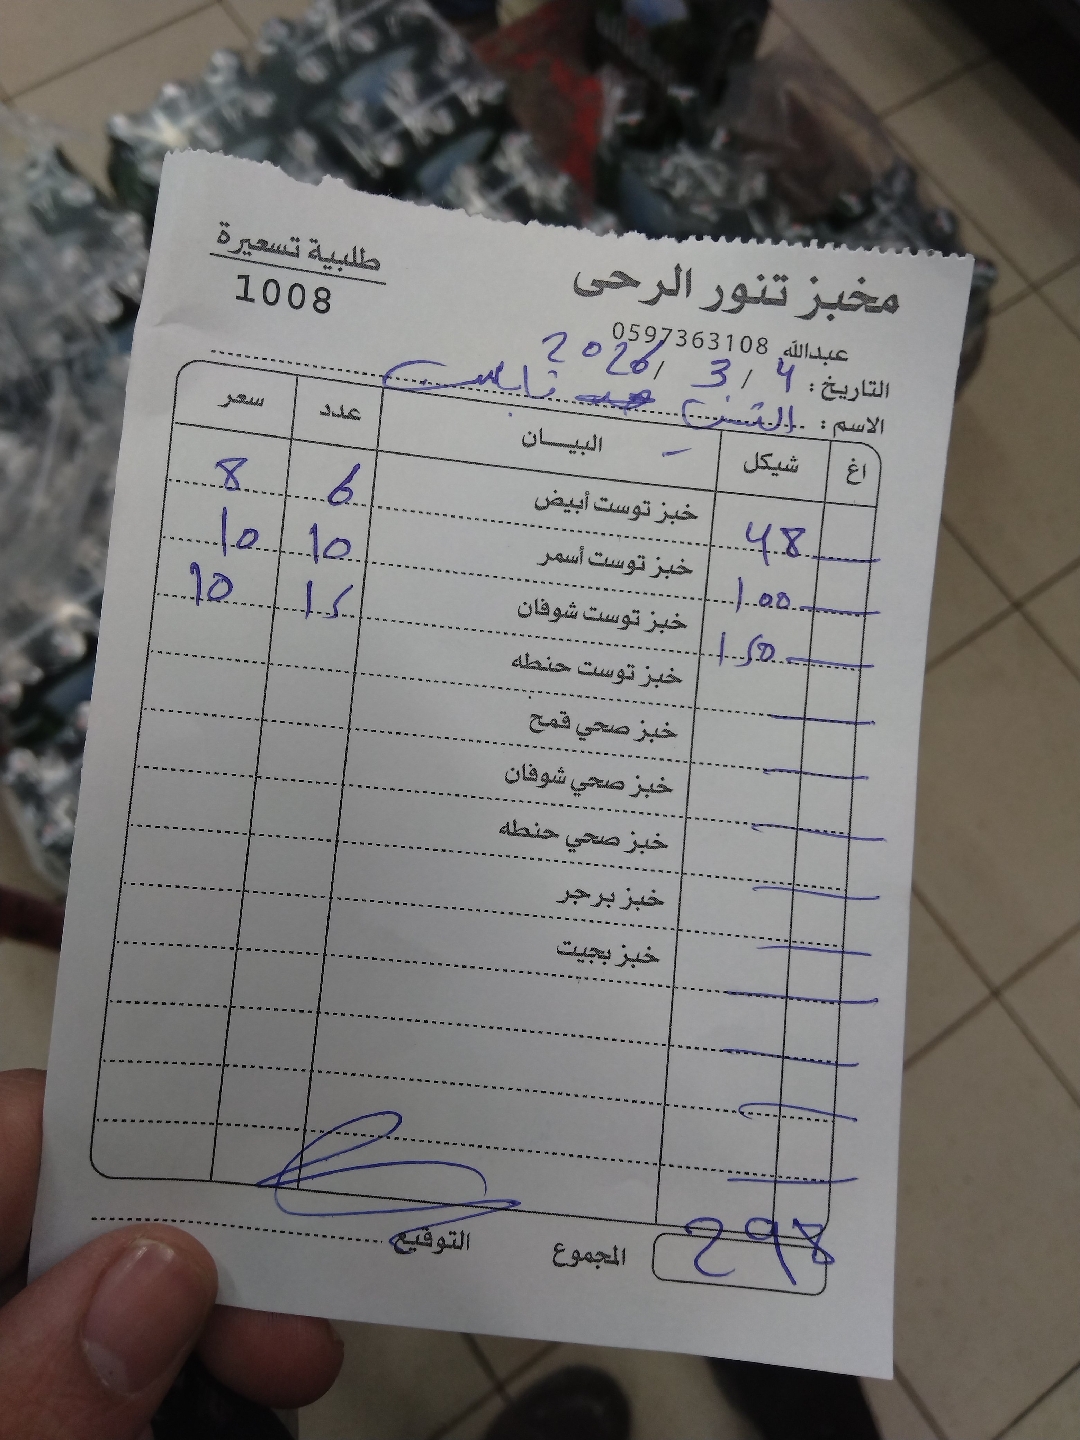 مخبز تنور الرحى
طلبية تسعيرة
1008
عبدالله 0597363108
التاريخ: 4 / 3 / 2026
الاسم: نابلس
اغ شيكل البيــــان عدد سعر
48 خبز توست أبيض 6 8
100 خبز توست أسمر 10 10
150 خبز توست شوفان 15 10
خبز توست حنطه
خبز صحي قمح
خبز صحي شوفان
خبز صحي حنطه
خبز برجر
خبز بجيت
298 المجموع
التوقيع